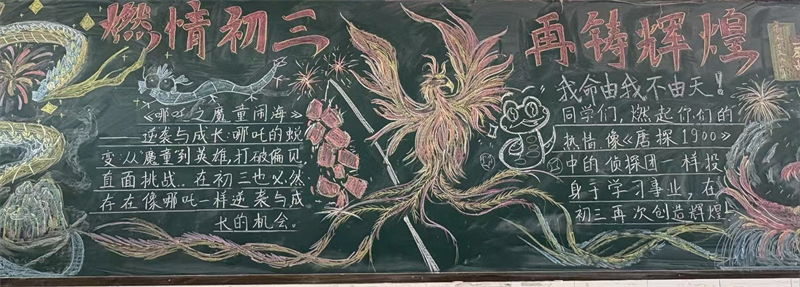 燃情初三
再铸辉煌
《哪吒之魔童闹海》
——逆袭与成长:哪吒的蜕
变:从魔童到英雄,打破偏见,
直面挑战..在初三也必然
存在像哪吒一样逆袭与成
长的机会。
我命由我不由天!
同学们,燃起你们的
热情像《唐探1900》
中的侦探团一样投
身于学习事业,在
初三再次创造辉煌